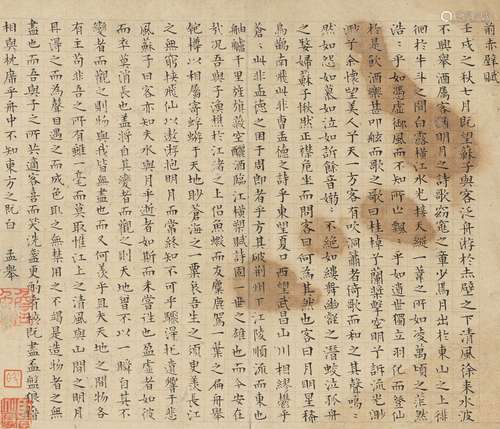 前赤壁賦
壬戌之秋七月既望蘇子與客泛舟游於赤壁之下清風徐來水波
不興舉酒屬客誦明月之詩歌窈窕之章少焉月出於東山之上徘
徊於斗牛之間白露橫江水光接天縱一葦之所如凌萬頃之茫然
浩〻乎如馮虛御風而不知所止飄〻乎如遺世獨立羽化而登仙
於是飲酒樂甚叩舷而歌之歌曰桂棹兮蘭槳擊空明兮訴流光渺
渺兮余懷望美人兮天一方客有吹洞蕭者倚歌而和之其聲嗚〻
然如怨如慕如泣如訴餘音嫋〻不絕如縷舞幽壑之潛蛟泣孤舟
之嫠婦蘇子愀然正襟危坐而問客曰何為其然也客曰月明星稀
烏鵲南飛此非曹孟德之詩乎東望夏口西望武昌山川相繆鬱乎
蒼〻此非孟德之困于周郎者乎方其破荊州下江陵順流而東也
舳艫千里旌旗蔽空釃酒臨江橫槊賦詩固一世之雄也而今安在
哉況吾與子漁樵於江渚之上侶魚蝦而友麋鹿駕一葉之扁舟舉
匏樽以相屬寄蜉蝣于天地眇滄海之一粟哀吾生之須臾羨長江
之無窮挾飛仙以遨遊抱明月而常終知不可乎驟得托遺響于悲
風蘇子曰客亦知夫水與月乎逝者如斯而未嘗往也盈虛者如彼
而卒莫消長也盖將自其變者而觀之則天地曾不以一瞬自其不
變者而觀之則物與我皆無盡也而又何羨乎且夫天地之間物各
有主苟非吾之所有雖一毫而莫取惟江上之清風與山間之明月
耳得之而為聲目遇之而成色取之無禁用之不竭是造物者之無
盡也而吾與子之所共適客喜而笑洗盞更酌肴核既盡杯盤狼籍
相與枕席乎舟中不知東方之既白 孟舉